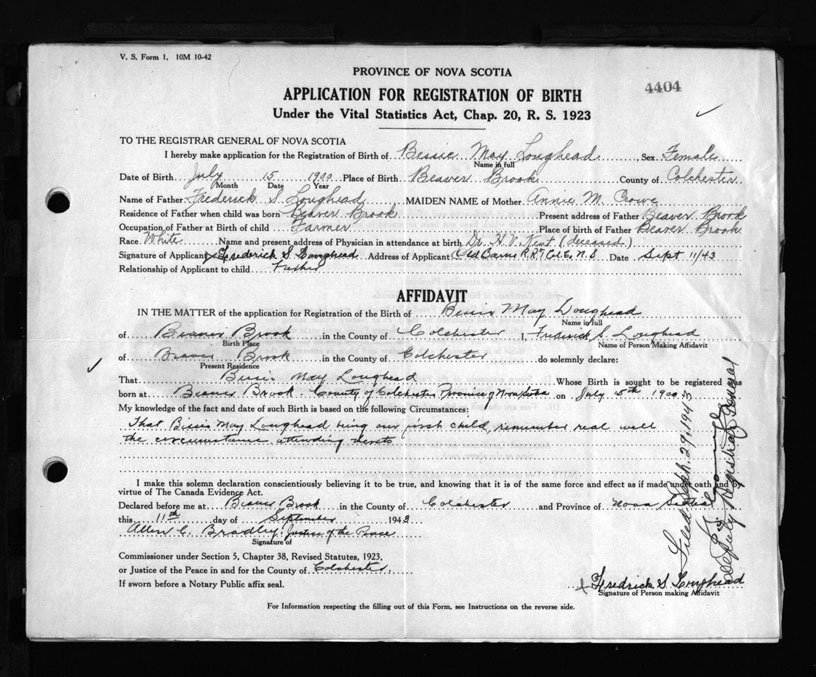 V. S. Form 1. 10M 10-42
PROVINCE OF NOVA SCOTIA
4404
APPLICATION FOR REGISTRATION OF BIRTH
Under the Vital Statistics Act, Chap. 20, R. S. 1923
TO THE REGISTRAR GENERAL OF NOVA SCOTIA
I hereby make application for the Registration of Birth of Bessie May Loughead Sex Female
Name in full
Date of Birth July 15 1900 Place of Birth Beaver Brook County of Colchester
Month Date Year
Name of Father Frederick S Loughead MAIDEN NAME of Mother Annie M. Crowe
Residence of Father when child was born Beaver Brook Present address of Father Beaver Brook
Occupation of Father at Birth of child Farmer Place of birth of Father Beaver Brook
Race White Name and present address of Physician in attendance at birth Dr. H. V. Kent (deceased)
Signature of Applicant Frederick S Loughead Address of Applicant Old Barns N.S Date Sept 11/43
Relationship of Applicant to child Father
AFFIDAVIT
IN THE MATTER of the application for Registration of the Birth of Bessie May Loughead
Name in full
of Beaver Brook in the County of Colchester I, Fredrick S. Loughead
Birth Place Name of Person Making Affidavit
of Beaver Brook in the County of Colchester do solemnly declare:
Present Residence
That Bessie May Loughead Whose Birth is sought to be registered was
born at Beaver Brook County of Colchester Province of Nova Scotia on July 15th 1900
My knowledge of the fact and date of such Birth is based on the following Circumstances:
That Bessie May Loughead being our first child, remember real well
the circumstance attending thereto
I make this solemn declaration conscientiously believing it to be true, and knowing that it is of the same force and effect as if made under oath and by
virtue of The Canada Evidence Act.
Declared before me at Beaver Brook in the County of Colchester and Province of Nova Scotia
this 11th day of September 1943
Allen C. Bradley Justice of the Peace
Signature of
Commissioner under Section 5, Chapter 38, Revised Statutes, 1923,
or Justice of the Peace in and for the County of Colchester
If sworn before a Notary Public affix seal.
x Fredrick S. Loughead
Signature of Person making Affidavit
For Information respecting the filling out of this Form, see Instructions on the reverse side.
Filed Sept. 29, 1943
Deputy Registrar General